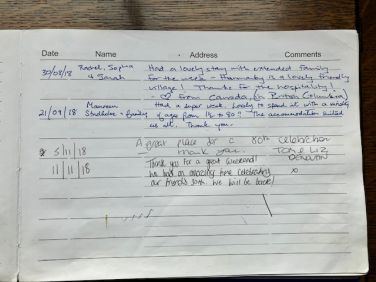 Date Name Address Comments
30/08/18 Rachel, Sophia & Sarah Had a lovely stay with extended family
for the week - is a lovely friendly
village! Thanks for the hospitality!
- ♡ from Canada, (in British Columbia)
21/09/18 Maureen & family Had a super week. Lovely to spend it with a variety
of ages from 1½ to 80! The accommodation suited
us all. Thank you.
A great place for a 80th celebration
5/11/18 thank you. Tom & Liz
11/11/18 Thank you for a great weekend!
We had an amazing time celebrating
our friends 50th. We will be back!
x